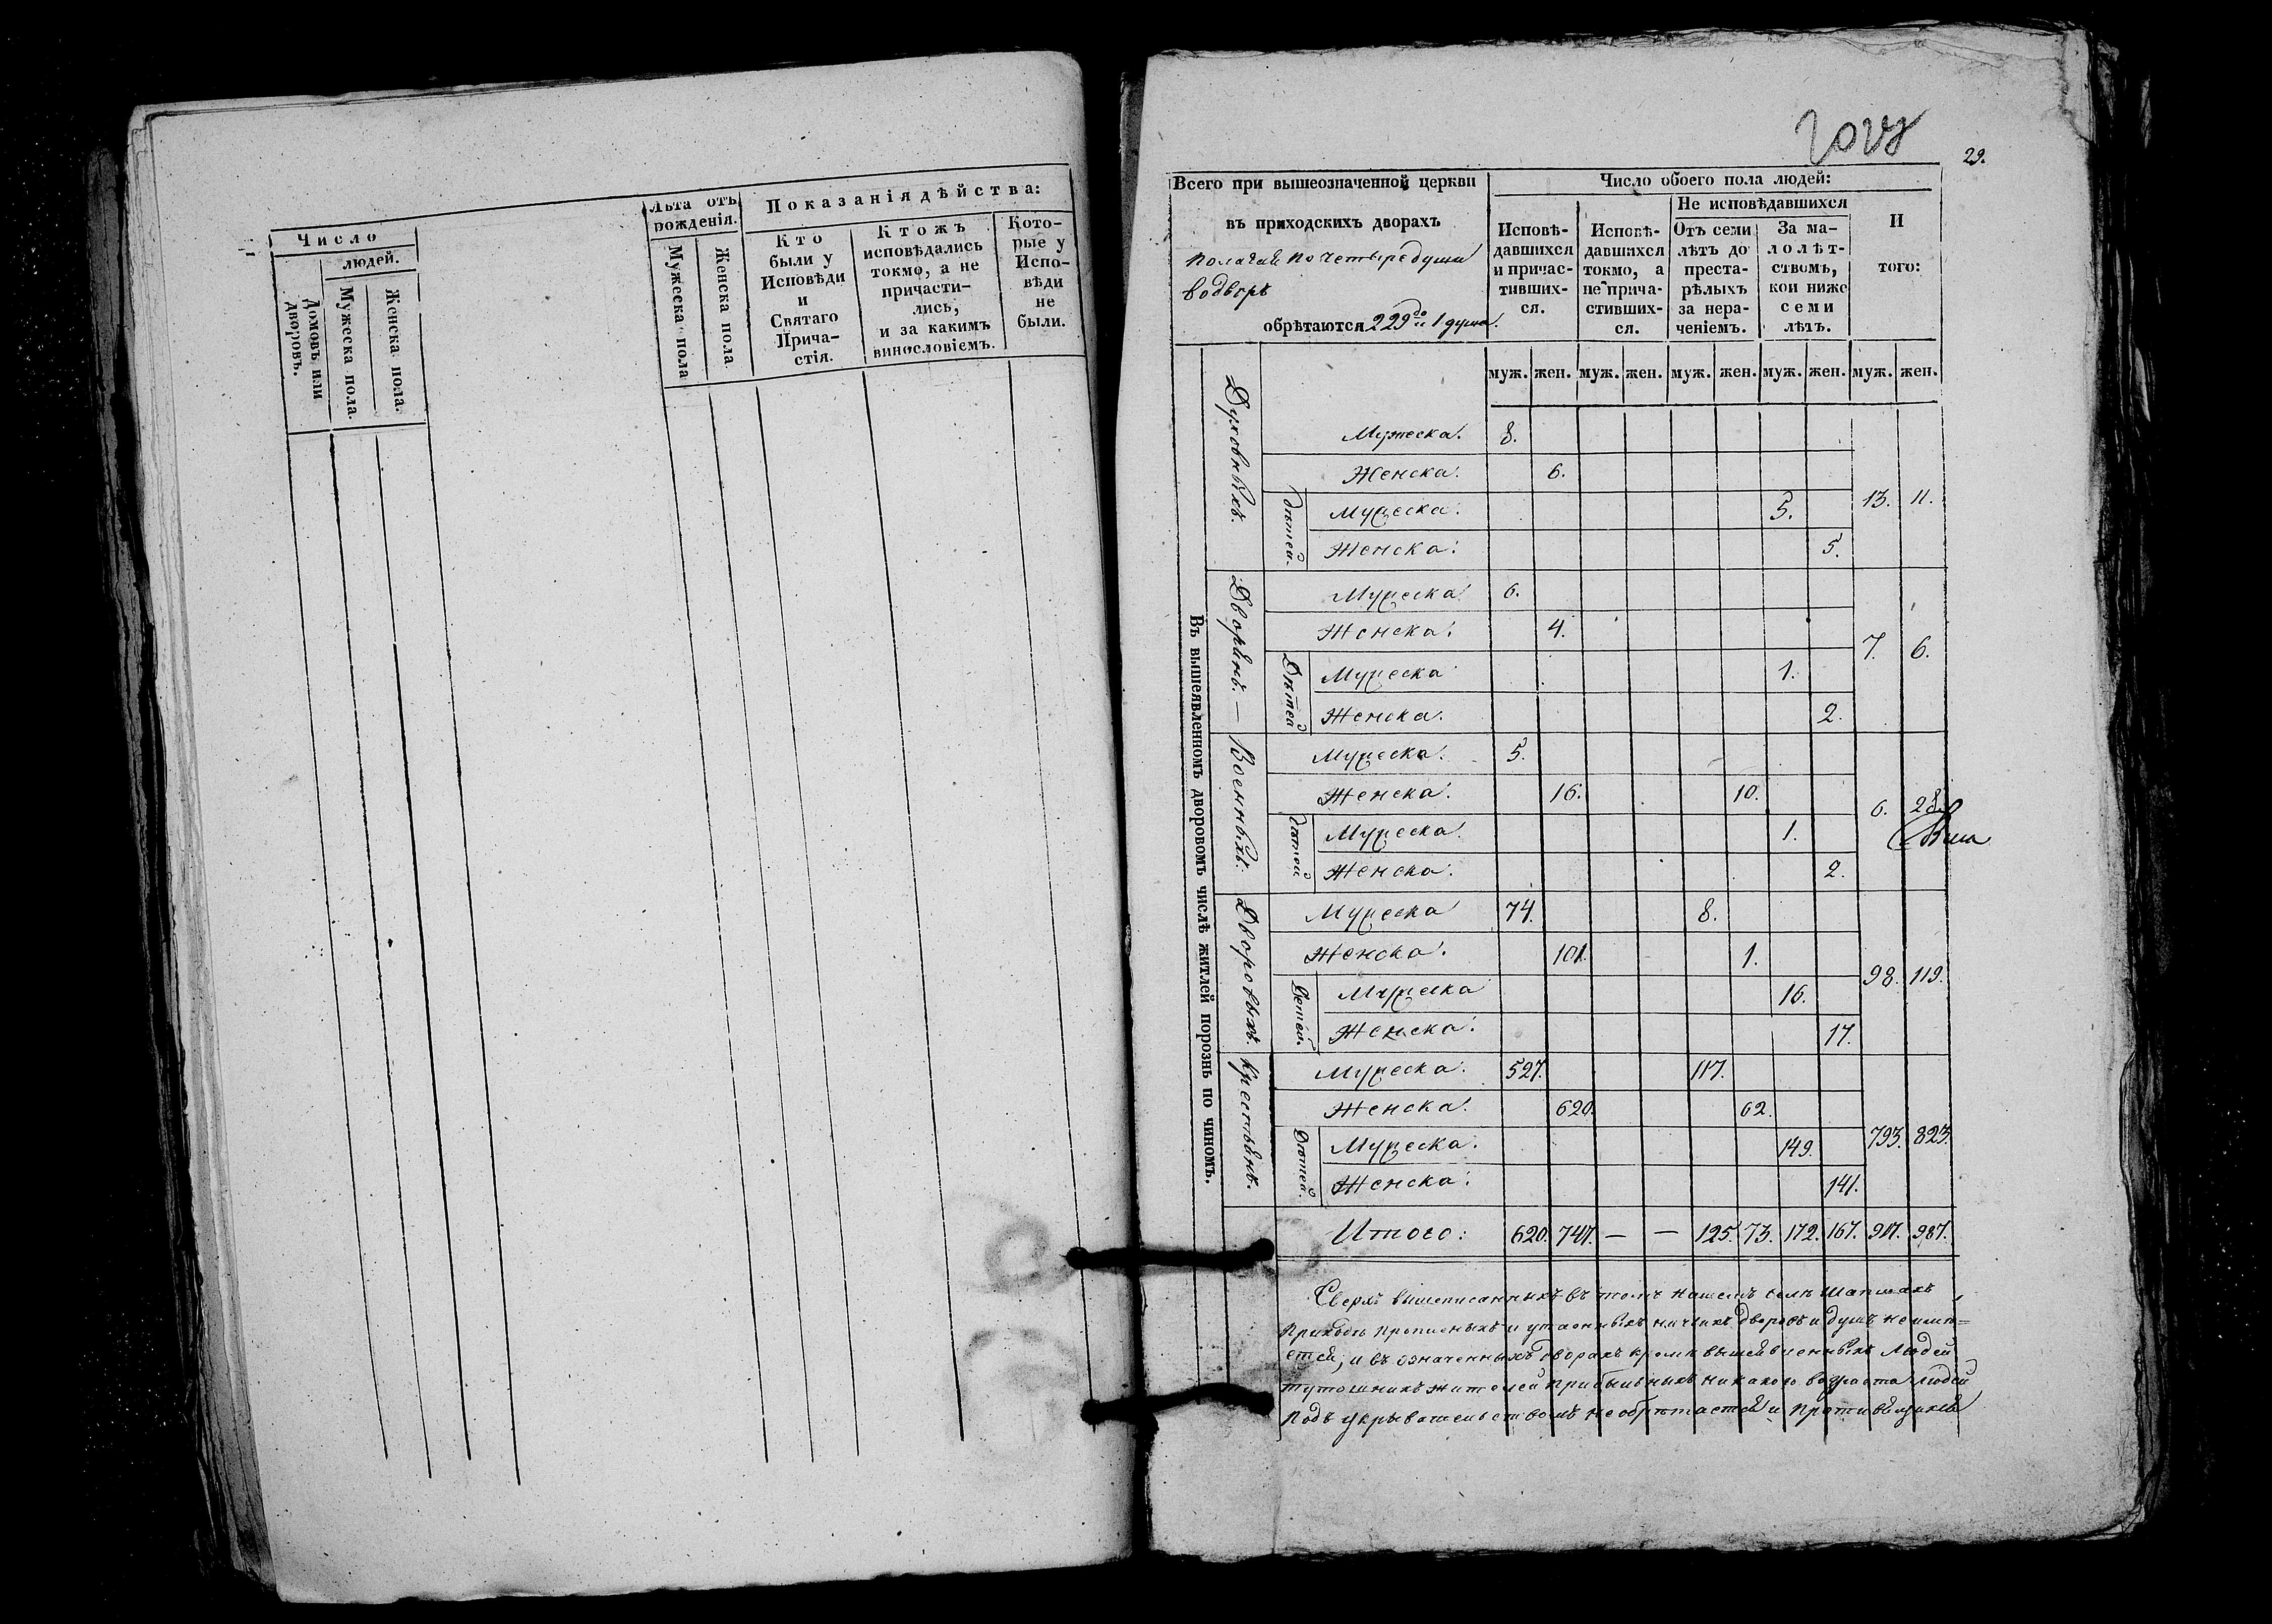 Число
людей.
Домовъ или дворовъ.
Мужеска пола.
Женска пола.
Лѣта отъ рожденія.
Мужеска пола
Женска пола
Показанія дѣйства:
Кто были у Исповѣди и Святаго Прича-
стія.
Ктожъ исповѣдались токмо, а не причасти-
лись, и за какимъ винословіемъ.
Кото-
рые у Испо-
вѣди не были.
29.
Всего при вышеозначенной церкви
въ приходскихъ дворахъ
полагая по четыре души
во дворѣ
обрѣтаются 229 до и 1 душа.
Число обоего пола людей:
Исповѣ-
давшихся
и причас-
тивших-
ся.
Исповѣ-
давшихся
токмо, а
не прича-
стивших-
ся.
Не исповѣдавшихся
Отъ семи
лѣтъ до
преста-
рѣлыхъ
за нера-
ченіемъ.
За ма-
лолѣт-
ствомъ,
кои ниже
семи
лѣтъ.
И
того:
муж. жен. муж. жен. муж. жен. муж. жен. муж. жен.
Въ вышеявленномъ дворовомъ числѣ житлей порознь по чиномъ.
Духовныхъ.
Мужеска. 8.
Женска. 6.
Дѣтей.
Мужеска. 5. 13. 11.
Женска. 5.
Дворянъ. —
Мужеска 6.
Женска. 4.
7. 6.
Дѣтей
Мужеска 1.
Женска. 2.
Военныхъ.
Мужеска. 5.
Женска. 16. 10.
6. 28.
Дѣтей
Мужеска 1.
Женска. 2.
Дворовыхъ.
Мужеска 74. 8.
Женска. 101. 1.
98. 119.
Детей.
Мужеска 16.
Женска. 17.
Крестьянъ.
Мужеска. 527. 117.
Женска. 620. 62.
793. 823.
Дѣтей.
Мужеска. 149.
Женска. 141.
Итого: 620. 747. — — 125. 73. 172. 167. 917. 987.
Сверхъ вышеписанныхъ въ томъ нашемъ селѣ
приходѣ прописныхъ и утаенныхъ ничьихъ дворовъ и душъ неимѣ=
ется, и въ означенныхъ дворахъ кромѣ вышеявленныхъ людей
тутошнихъ жителей прибылыхъ никакого возраста людей
подъ укрывательствомъ необрѣтается и противъ